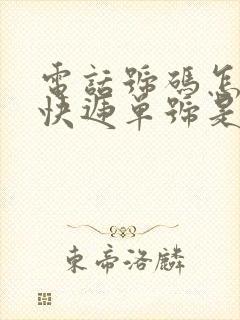 電話號碼怎
快遞單號是
東帝洛麟